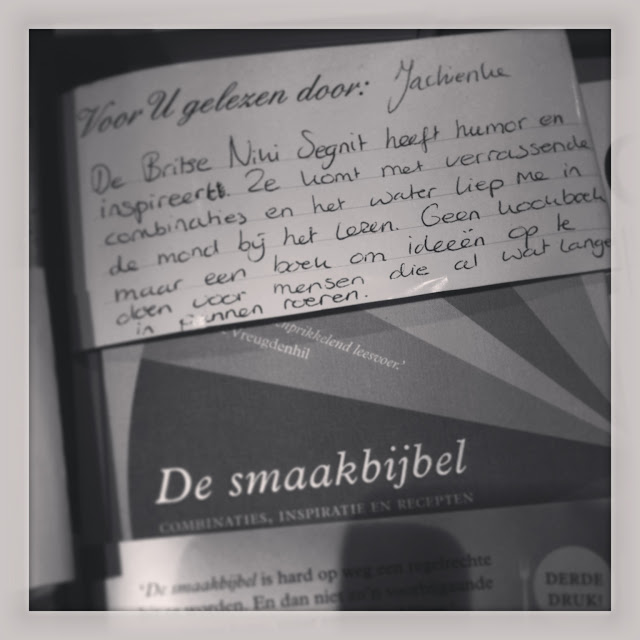 Voor U gelezen door: Jachienke
De Britse Niki Segnit heeft humor en
inspireert. Ze komt met verrassende
combinaties en het water liep me in
de mond bij het lezen. Geen kookboek
maar een boek om ideeën op te
doen voor mensen die al wat langer
in pannen roeren.
prikkelend leesvoer.'
Vreugdenhil
De smaakbijbel
COMBINATIES, INSPIRATIE EN RECEPTEN
'De smaakbijbel is hard op weg een regelrechte
worden. En dan niet zo'n
DERDE
DRUK!